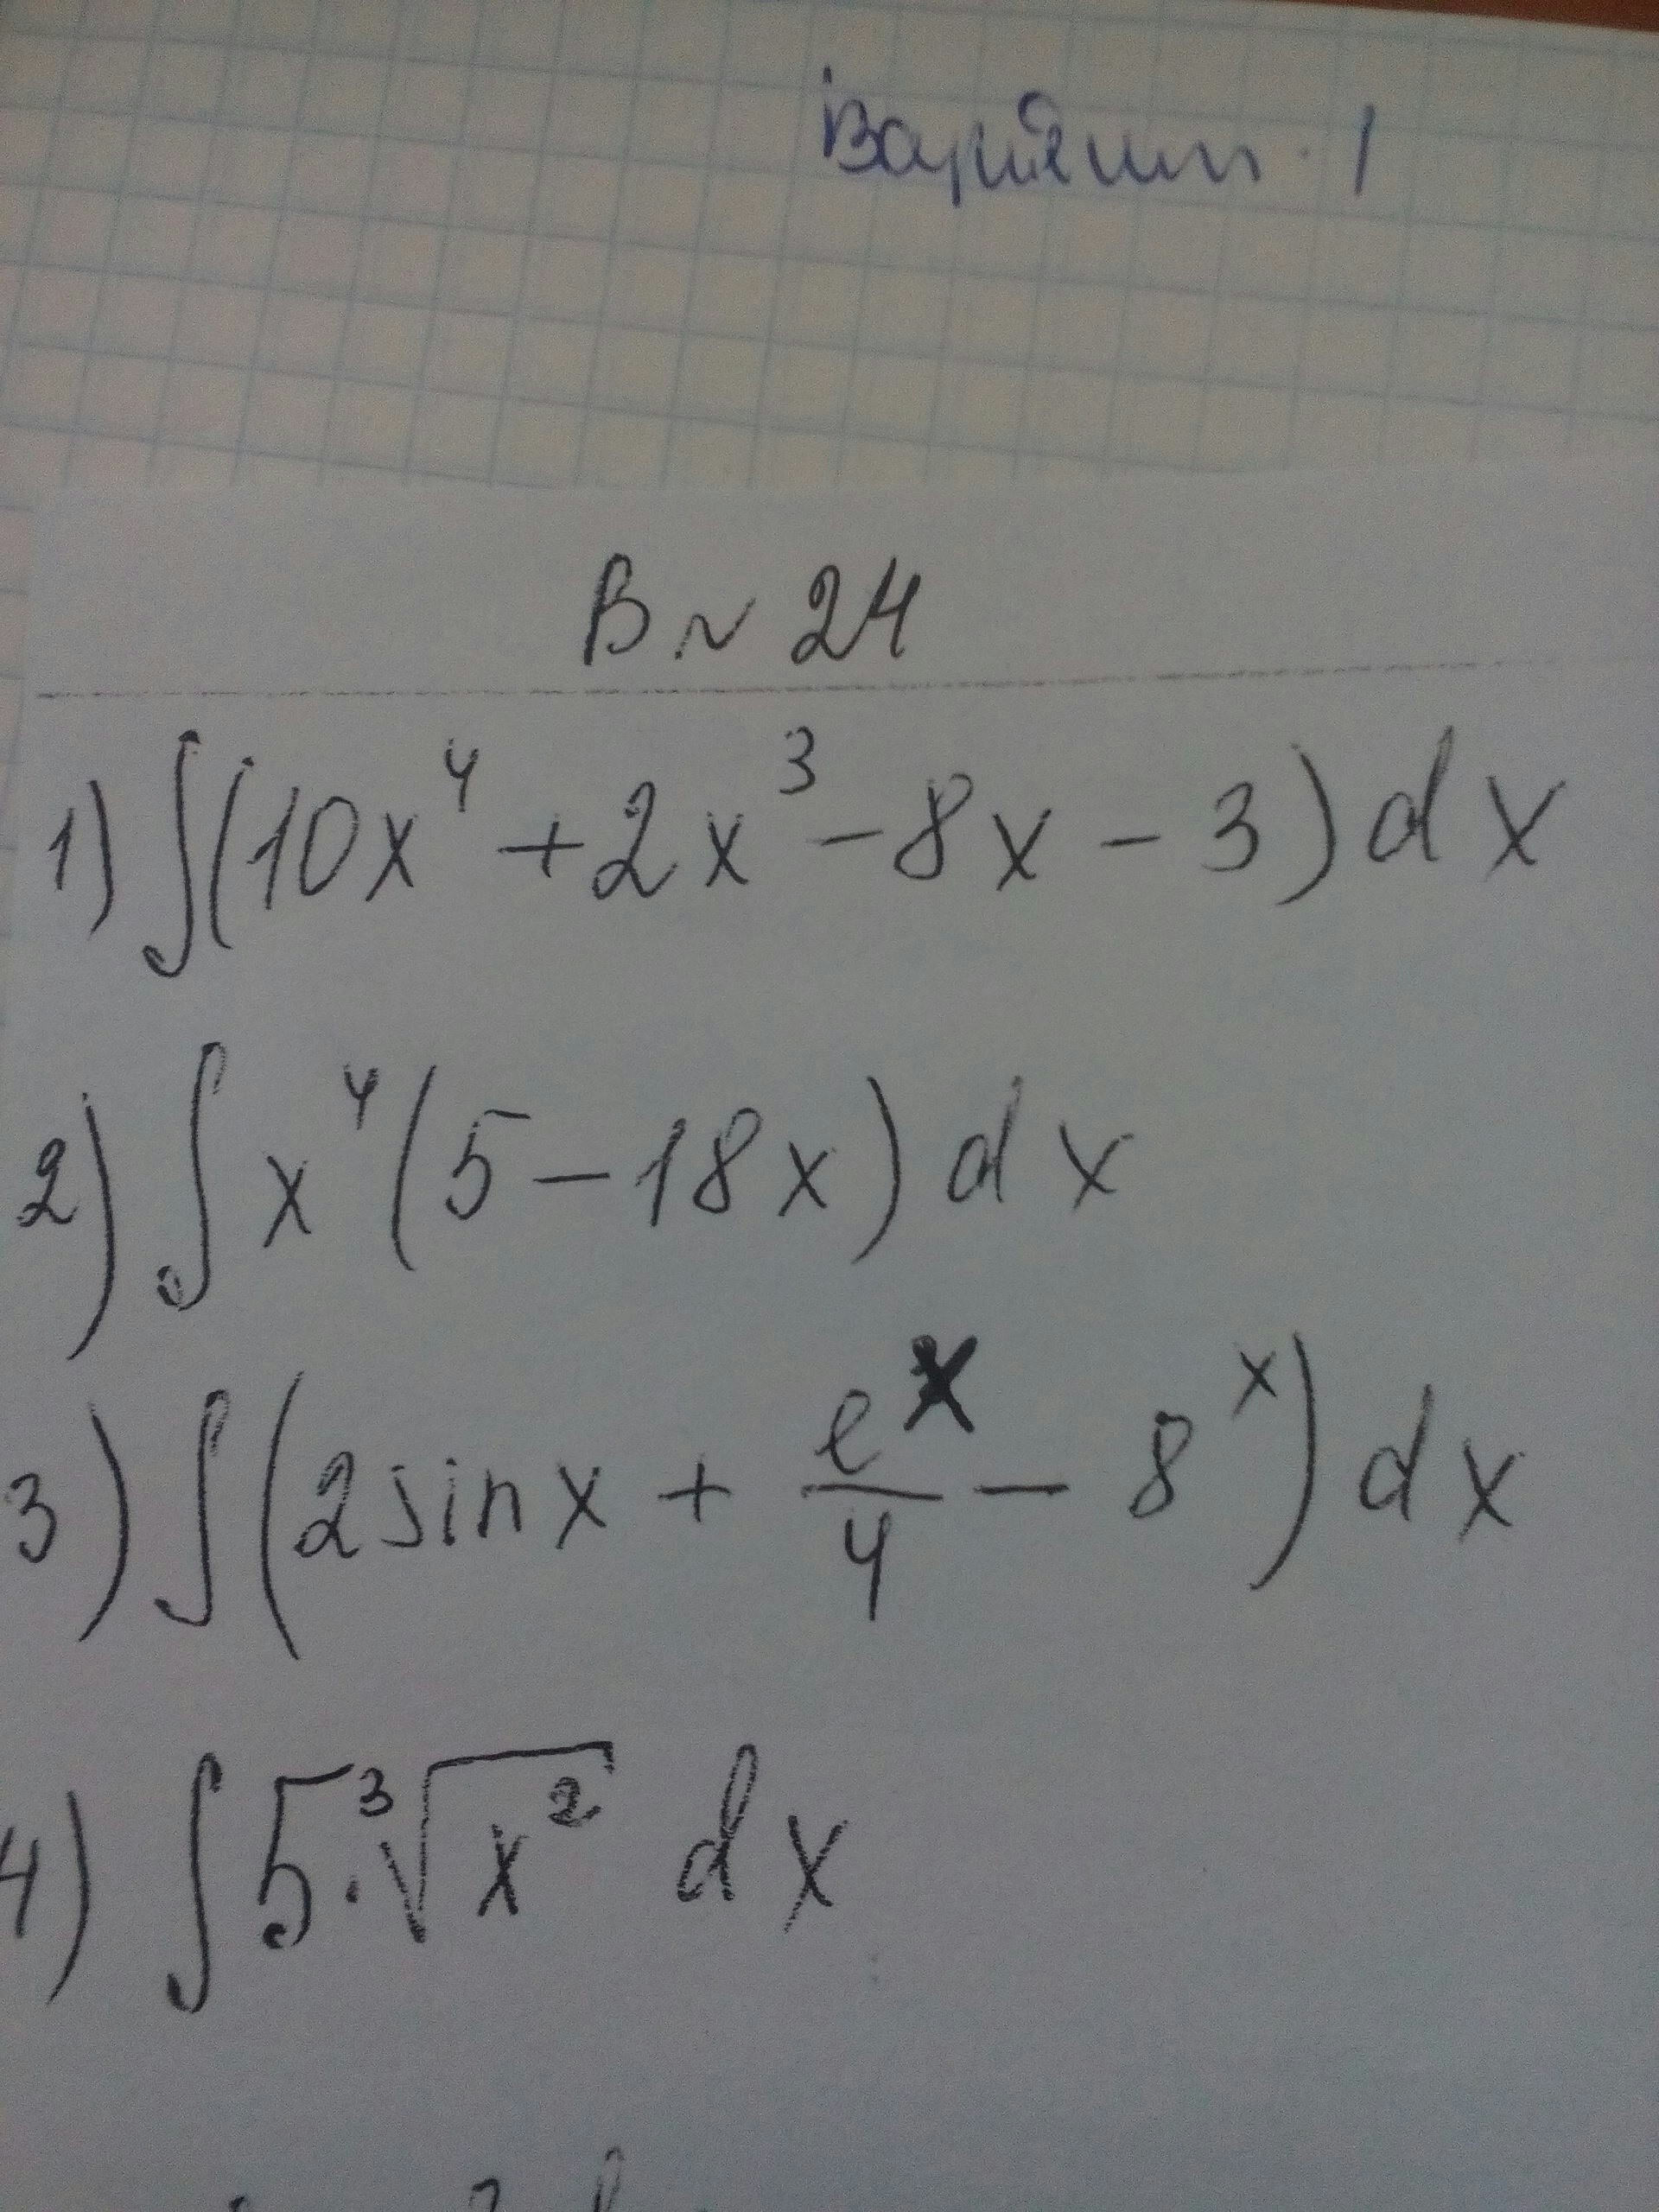 Вариант 1
В №24
1) ∫(10x⁴ + 2x³ - 8x - 3) dx
2) ∫ x⁴(5 - 18x) dx
3) ∫(2 sin x + eˣ/4 - 8ˣ) dx
4) ∫ 5·∛x² dx